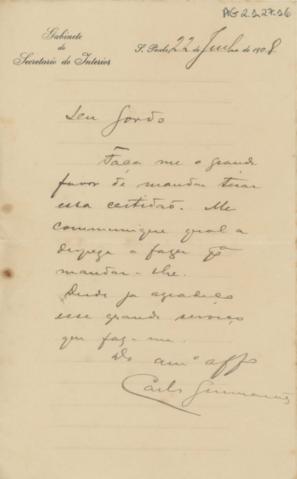 AG 2.3.27.26
Gabinete
do
Secretario do Interior
S. Paulo, 22 de Junho de 1908
Seu Gordo
Faça me o grande
favor de mandar tirar
essa certidão. Me
communique qual a
despeza a fazer pª
mandar-lhe.
Desde já agradeço
esse grande serviço
que faz-me.
Do amº affº
Carlos Guimarães